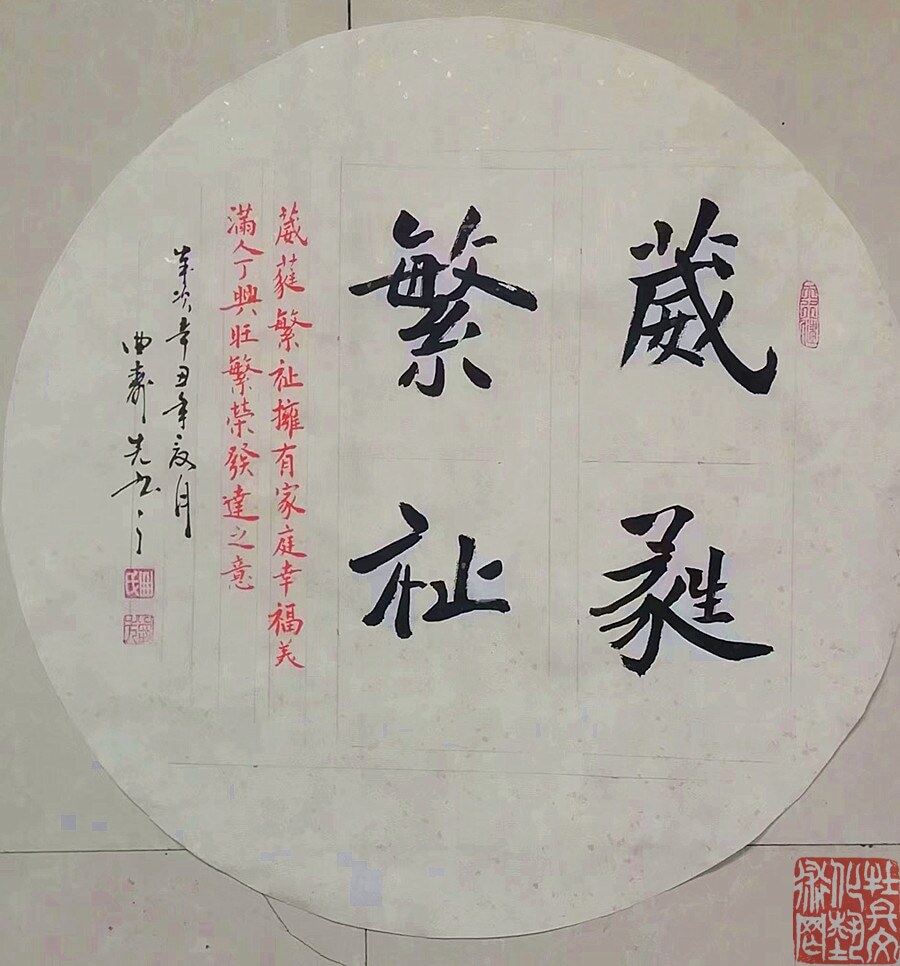 葳㽔
繁祉
葳蕤繁祉擁有家庭幸福美
滿人丁興旺繁榮發達之意
歲次辛丑年夏月
曲壽先书之